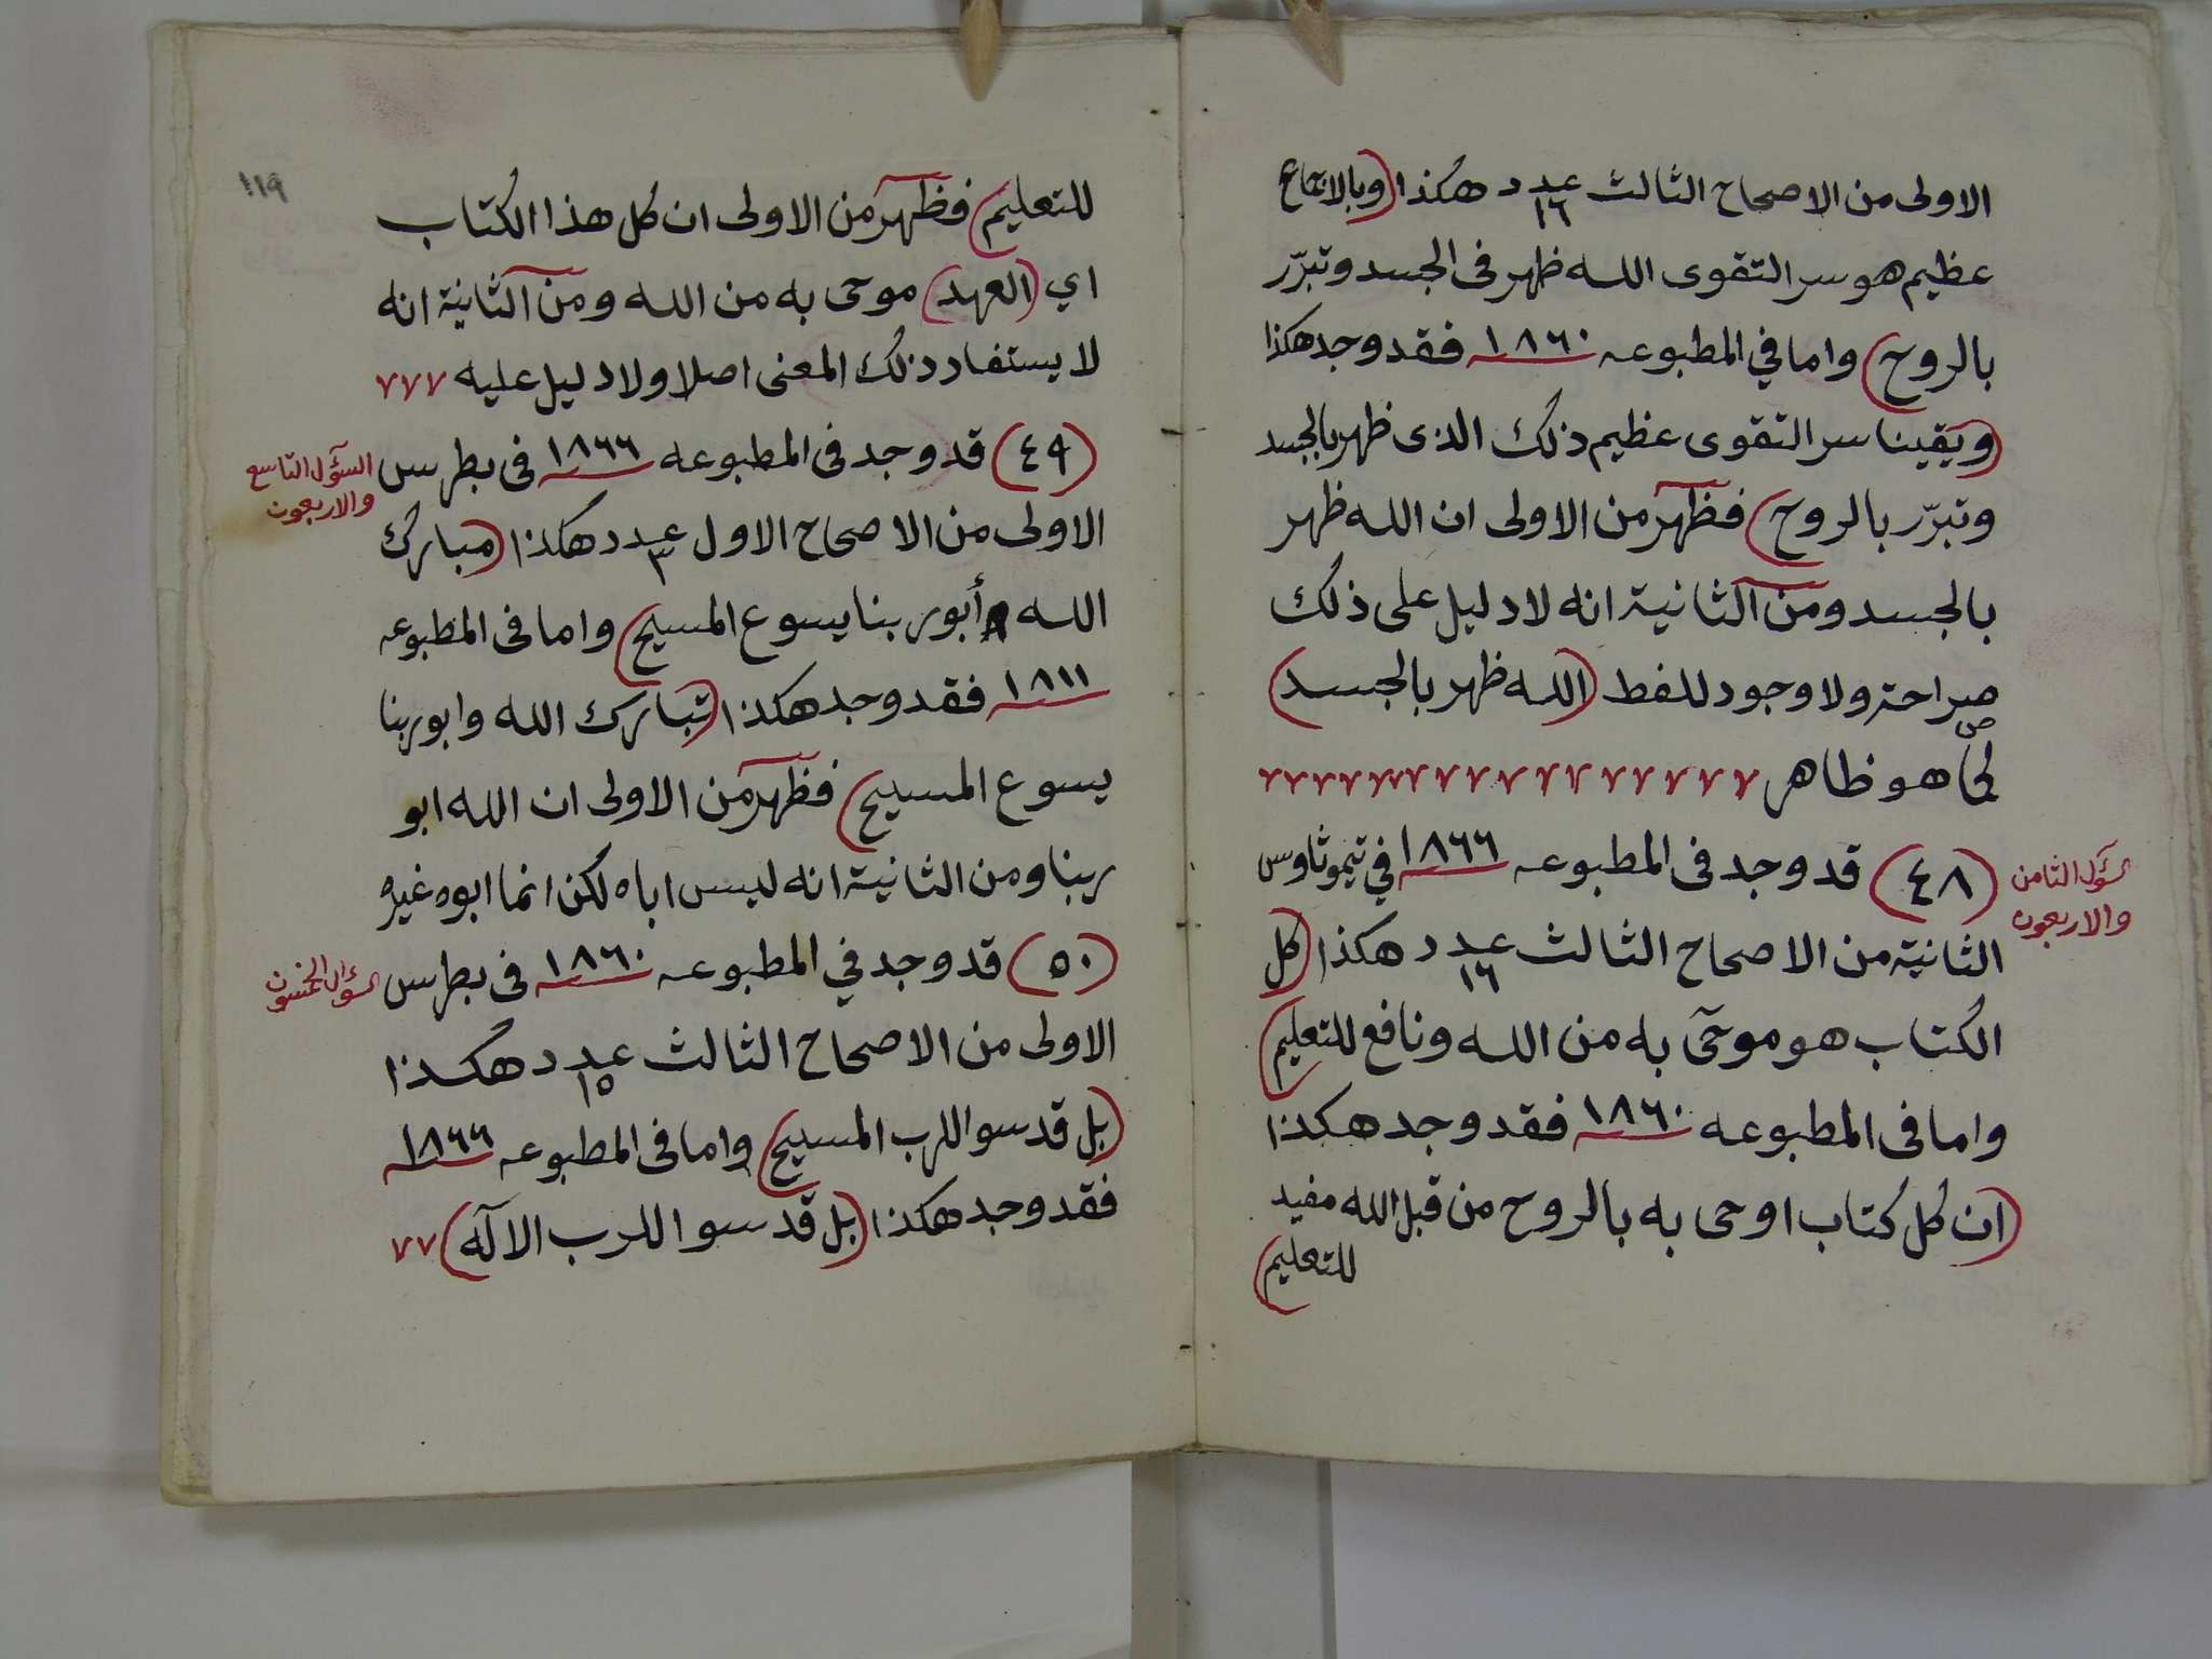 الاولى من الاصحاح الثالث عدد ١٦ هكذا (وبالاجماع
عظيم هو سر التقوى الله ظهر فى الجسد وتبرّر
بالروح) واما في المطبوعه ١٨٦٠ فقد وجد هكذا
(ويقينا سر التقوى عظيم ذلك الذى ظهر بالجسد
وتبرّر بالروح) فظهر من الاولى ان الله ظهر
بالجسد ومن الثانية انه لا دليل على ذلك
صراحة ولا وجود للفظ (الله ظهر بالجسد)
كما هو ظاهر
السؤال الثامن
والاربعون
(٤٨) قد وجد فى المطبوعه ١٨٦٦ في تيموثاوس
الثانية من الاصحاح الثالث عدد ١٦ هكذا (كل
الكتاب هو موحًى به من الله ونافع للتعليم)
واما فى المطبوعه ١٨٦٠ فقد وجد هكذا
(ان كل كتاب اوحى به بالروح من قبل الله مفيد
للتعليم)
١١٩
للتعليم) فظهر من الاولى ان كل هذا الكتاب
اي (العهد) موحى به من الله ومن الثانية انه
لا يستفاد ذلك المعنى اصلا ولا دليل عليه
السؤال التاسع
والاربعون
(٤٩) قد وجد فى المطبوعه ١٨٦٦ فى بطرس
الاولى من الاصحاح الاول عدد ٣ هكذا (مبارك
الله أبو ربنا يسوع المسيح) واما فى المطبوعه
١٨١١ فقد وجد هكذا (تبارك الله وابو ربنا
يسوع المسيح) فظهر من الاولى ان الله ابو
ربنا ومن الثانية انه ليس اباه لكن انما ابوه غيره
السؤال الخمسون
(٥٠) قد وجد في المطبوعه ١٨٦٠ فى بطرس
الاولى من الاصحاح الثالث عدد ١٥ هكذا
(بل قدسوا الرب المسيح) واما فى المطبوعه ١٨٦٦
فقد وجد هكذا (بل قدسوا الرب الاله)